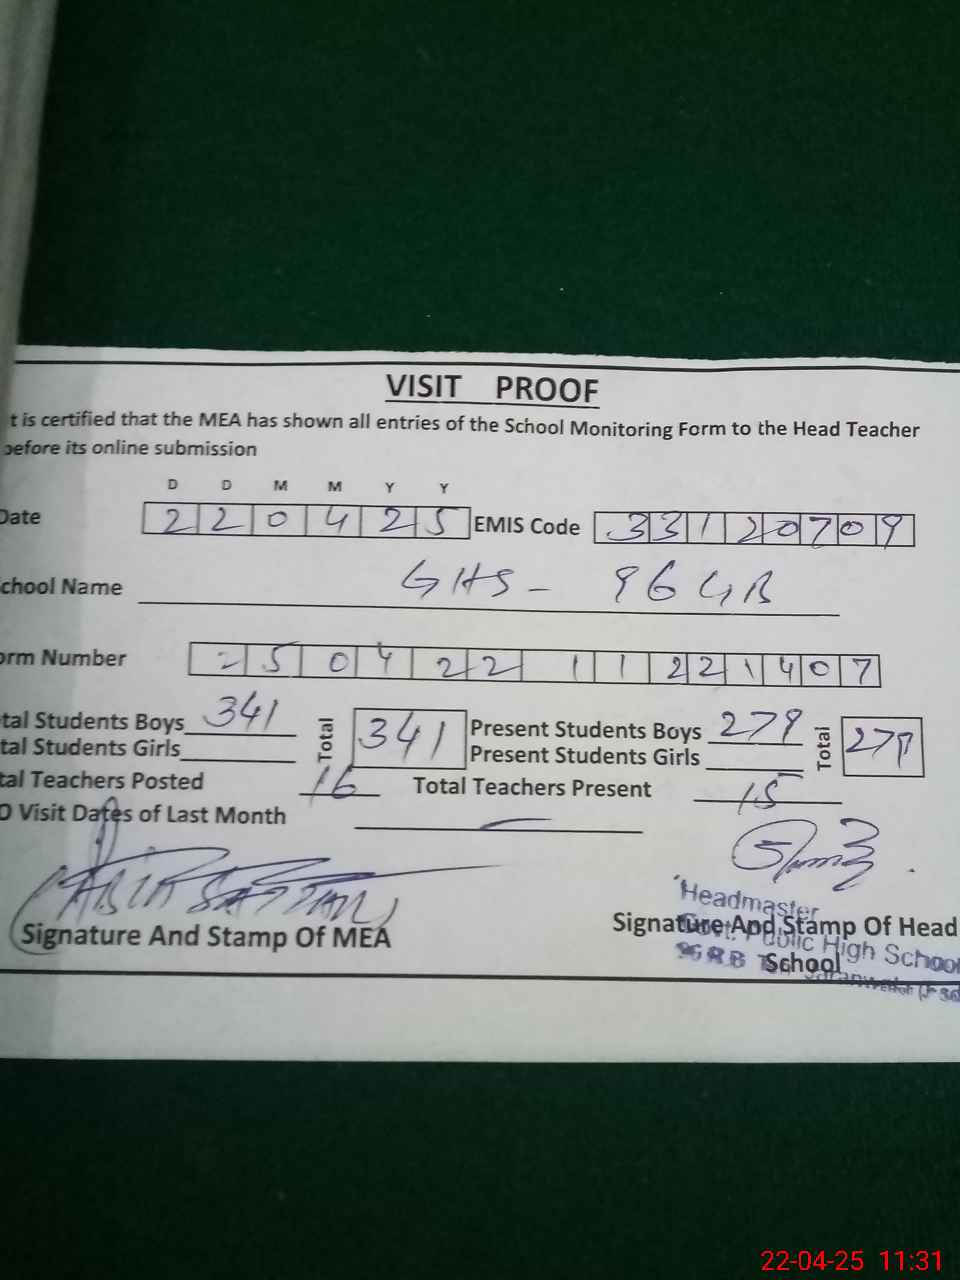 VISIT PROOF
t is certified that the MEA has shown all entries of the School Monitoring Form to the Head Teacher
before its online submission
D D M M Y Y
Date 2 2 0 4 2 5 EMIS Code 3 3 1 2 0 7 0 9
chool Name GHS - 96 GB
orm Number 2 5 0 4 2 2 1 1 2 2 1 4 0 7
tal Students Boys 341 Total 341 Present Students Boys 279 Total 279
tal Students Girls Present Students Girls
tal Teachers Posted 16 Total Teachers Present 15
O Visit Dates of Last Month
Signature And Stamp Of MEA
Headmaster
Signature And Stamp Of Head
Public High School
School
22-04-25 11:31